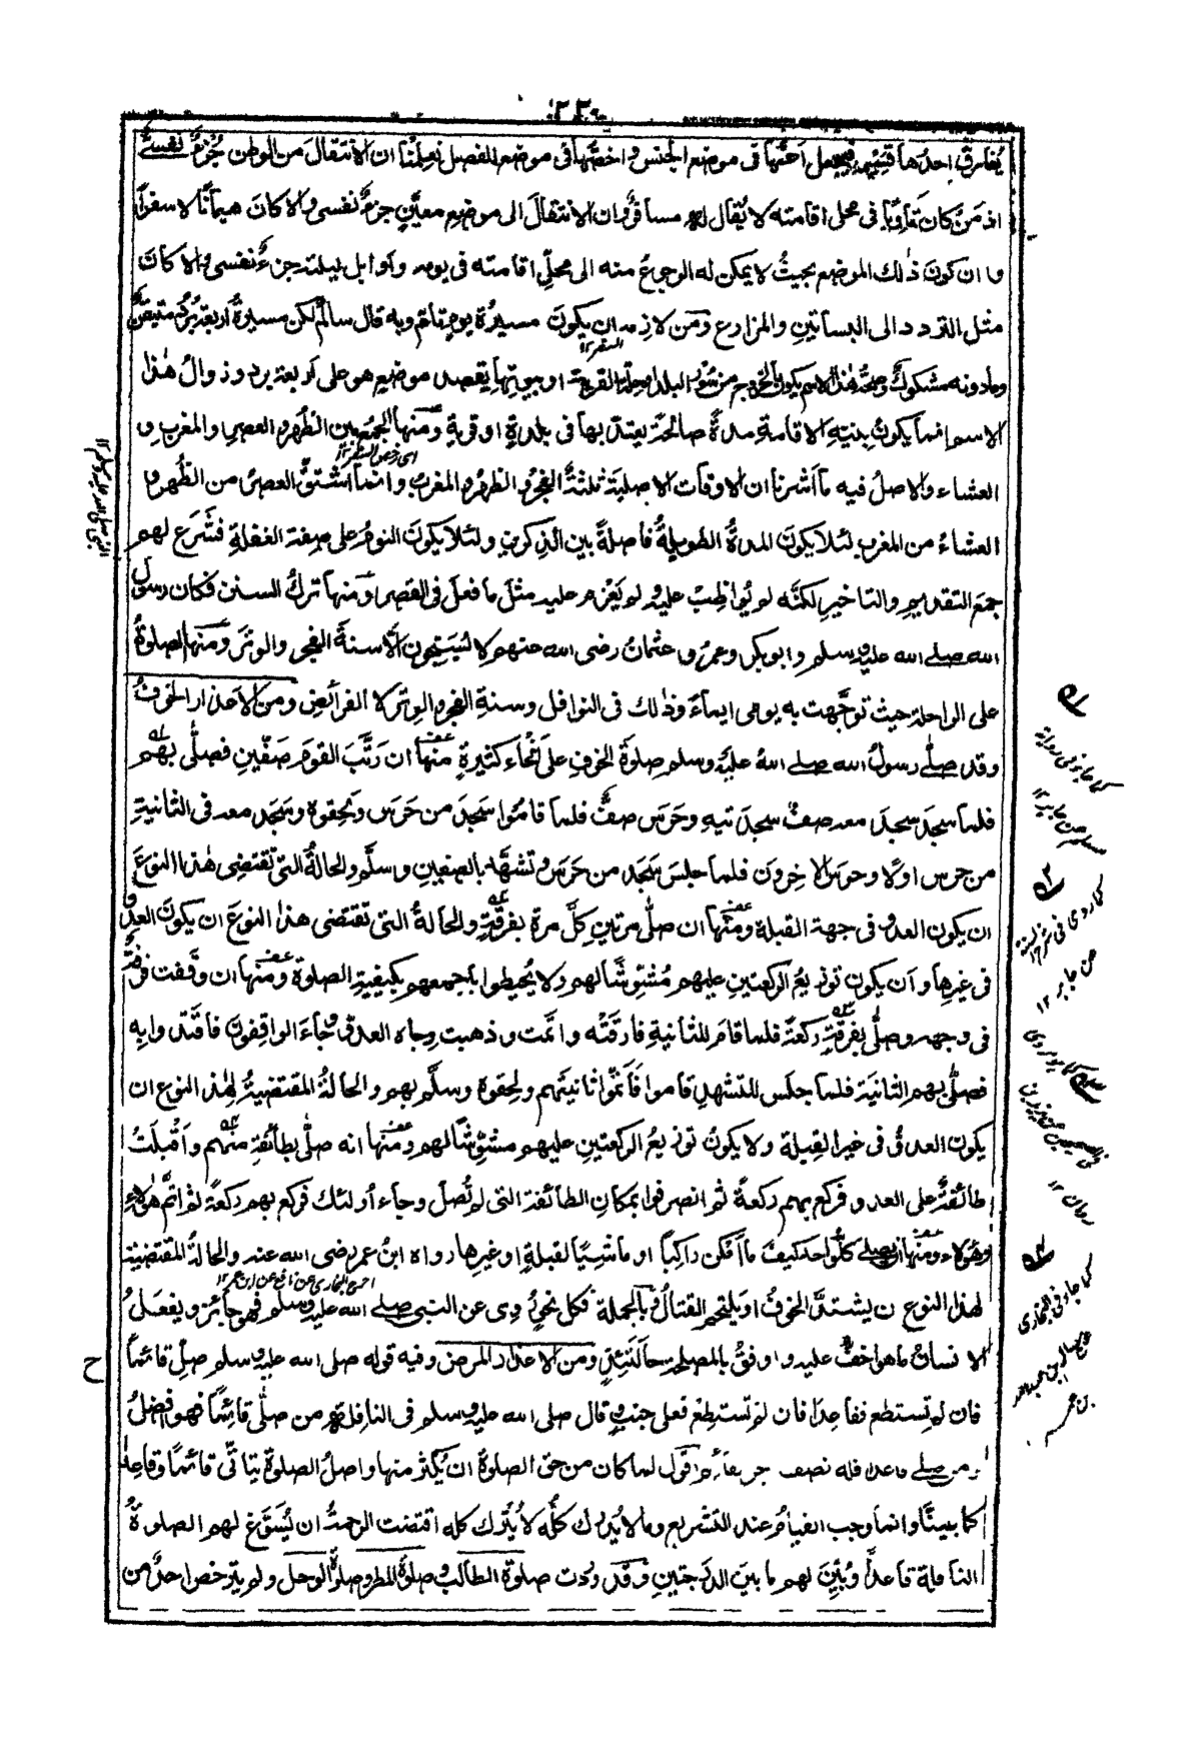 ٢٢٠
يُفارق احدُها قسيمه فيجعل اَعمَّها فى موضع الجنس واخصَّها فى موضع الفصل نعلمنا ان الانتقال من الوطن جُزءٌ نفسىٌّ
اذ مَن كان ثاويا فى محل اقامته لا يُقال له مسافر وان الانتقالَ الى موضع معيَّن جزءٌ نفسى والا كان هيماناً لا سفراً
وان كونَ ذٰلك الموضع بحيثُ لا يمكن له الرجوعُ منه الى محلِّ اقامته فى يومه واوائل ليلته جزءٌ نفسى والا كانَ
مثل التردد الى البساتينِ والمزارع ومن لازمه ان يكونَ مسيرةَ يومٍ تام وبه قال سالمٌ لكن مسيرةُ اربعةِ بُرُد متيقنٌ
السفر١٢
وما دونه مشكوكٌ وصحةُ هٰذا الاسم يكون بالخروج من سُور البلد او حلة القرية او بيوتها بقصد موضع هو على اربعة برد وزوالُ هٰذا
الاسم انما يكونُ بنية الاقامة مدةً صالحةً يعتدّ بها فى بلدةٍ او قريةٍ ومنها الجمعُ بين الظُهر والعصر والمغرب و
اى رخص السفر١٢
العشاء والاصلُ فيه ما اَشرنا ان الاوقات الاصلية ثلثةٌ الفجرُ والظهرُ والمغربُ وانما اشتقَّ العصرُ من الظُهر و
العشاءُ من المغرب لئلا يكونَ المدةُ الطويلةُ فاصلةً بين الذِكرينِ ولئلا يكونَ النومُ على صفة الغفلةِ فشَرع لهم
جمعَ التقديم والتاخيرِ لكنَّه لم يُواظِب عليه ولم يَعزم عليه مثلَ ما فعلَ فى القصر ومنها تركُ السنن فكان رسول
الله صلے الله عليه وسلم وابوبكر وعمرُ وعثمانُ رضى الله عنهم لا يُسَبِّحون الا سنةَ الفجر والوترَ ومنها الصلوةُ
على الراحلة حيث توجَّهت به يومى ايماءً وذٰلك فى النوافل وسنةِ الفجر والوتر لا الفرائضِ ومن الاعذار الخوفُ
وقد صلّٰى رسولُ الله صلے اللهُ عليه وسلم صلوةَ الخوفِ على انحاءٍ كثيرةٍ منها ان رَتَّبَ القومَ صَفّينِ فصلّٰى بهم
فلما سجدَ سجدَ معه صفٌ سجدتيهِ وحَرَس صفٌ فلما قامُوا سَجدَ من حَرَس ولحِقوه وسَجَد معه فى الثانيةِ
من حرس اولًا وحرسَ الاخرون فلما جلسَ سَجَد من حَرَسَ وتشهَّد بالصفينِ وسلَّم والحالةُ التى تقتضى هٰذا النوعَ
ان يكون العدو فى جهة القبلة ومنها ان صلّٰى مرتينِ كلَّ مرة بفرقةٍ والحالةُ التى تقتضى هذا النوعَ ان يكونَ العدو
فى غيرها وان يكون توزيعُ الركعتينِ عليهم مُشوِّشًا لهم ولا يُحيطوا باجمعهم بكيفيةِ الصلوة ومنها ان وقفت فرقةٌ
فى وجهه وصلّٰى بفرقةٍ ركعةً فلما قامَ للثانيةِ فارقَتْه واتمَّت وذهبت وجاه العدو وجاءَ الواقِفون فاقتدوا بِه
فصلّٰى بهم الثانيةَ فلما جلسَ للتشهدِ قاموا فاَتمُّوا ثانيتَهم ولحِقوه وسلَّم بهم والحالةُ المقتضيةُ لهٰذا النوع ان
يكونَ العدوُّ فى غير القِبلة ولا يكونُ توزيعُ الركعتينِ عليهم مشوِّشًا لهم ومنها انه صلّٰى بطائفةٍ منهم واَقْبلَتْ
طائفةٌ على العدو فركع بهم ركعةً ثم انصرفوا بمكانِ الطائفة التى لم تُصلِّ وجاءَ أولئك فركع بهم ركعةً ثم اتمَّ هٰؤلاءِ
وهٰؤلاء ومنها ان يصلے كلُّ واحد كيفَ ما اَمكن راكبًا او ماشِيًا لقبلةٍ او غيرِها رواه ابنُ عمر رضى الله عنه والحالةُ المقتضيةُ
اخرج البخارى عن نافع عن ابن عمر١٢
لهذا النوع ان يشتدَّ الخوفُ او يلتحم القتالُ وبالجملة فكلُّ نحوٍ رُوى عن النبى صلے الله عليه وسلم فهو جائزٌ ويفعلُ
الانسانُ ما هو اخفُّ عليه واوفقُ بالمصلحة حالتئذٍ ومن الاعذار المرض وفيه قوله صلى الله عليه وسلم صلِّ قائمًا
ح
فان لم تستطع فقاعِدًا فان لم تستطِع فعلى جنبٍ وقال صلى الله عليه وسلم فى النافلة من صلّٰى قائمًا فهو افضلُ
ومن صلے قاعدا فله نصف اجر القائم اقول لما كان من حق الصلوة ان يُكثر منها واصلُ الصلوة يتاتّٰى قائمًا وقاعدا
كما بيَّنّا وانما وجب القيامُ عند التشريع وما لا يُدرك كلُّه لا يُترك كله اقتضت الرحمةُ ان يُسَوِّغ لهم الصلوةُ
النافلةَ قاعداً وبُيِّن لهم ما بين الدرجتين وقد وردت صلوة الطالب وصلوةُ المطر وصلوةُ الوحل ولم يترخص احدٌ من
النبى صلى الله عليه وسلم ١٢
كما روى فى شرح السنة
عن جابر ١٢
كما جاء فى البخارى
عن سالم بن عبد الله
بن عمر